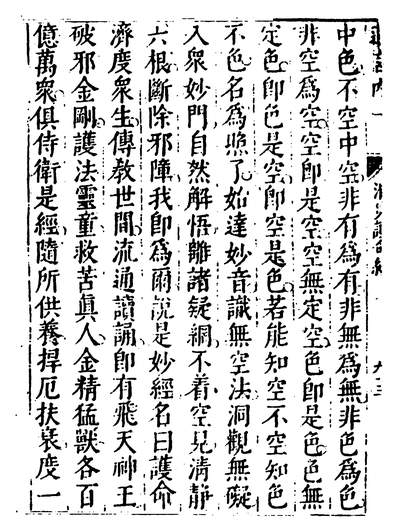 中色不空中空非有爲有非無爲無非色爲色
非空爲空空卽是空空無定空色卽是色色無
定色卽色是空卽空是色若能知空不空知色
不色名爲照了始達妙音識無空法洞觀無礙
入衆妙門自然解悟離諸疑網不着空見清靜
六根斷除邪障我卽爲爾說是妙經名曰護命
濟度衆生傳教世間流通讀誦卽有飛天神王
破邪金剛護法靈童救苦眞人金精猛獸各百
億萬衆俱侍衛是經隨所供養捍厄扶衰度一